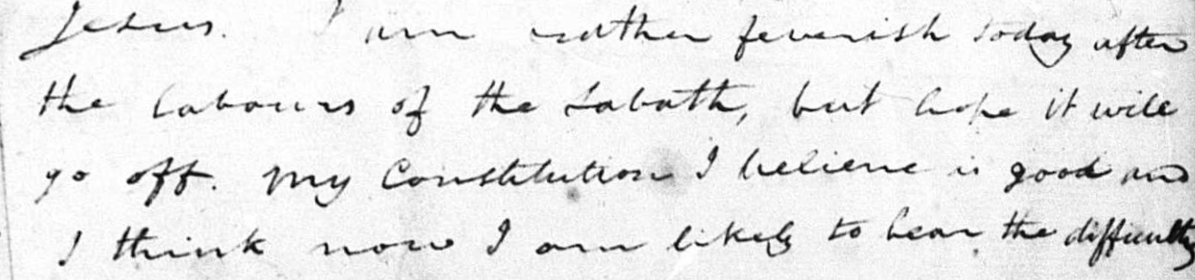 Jesus. I am rather feverish today after
the labours of the Sabath, but hope it will
go off. My Constitution I believe is good and
I think now I am likely to bear the difficulty